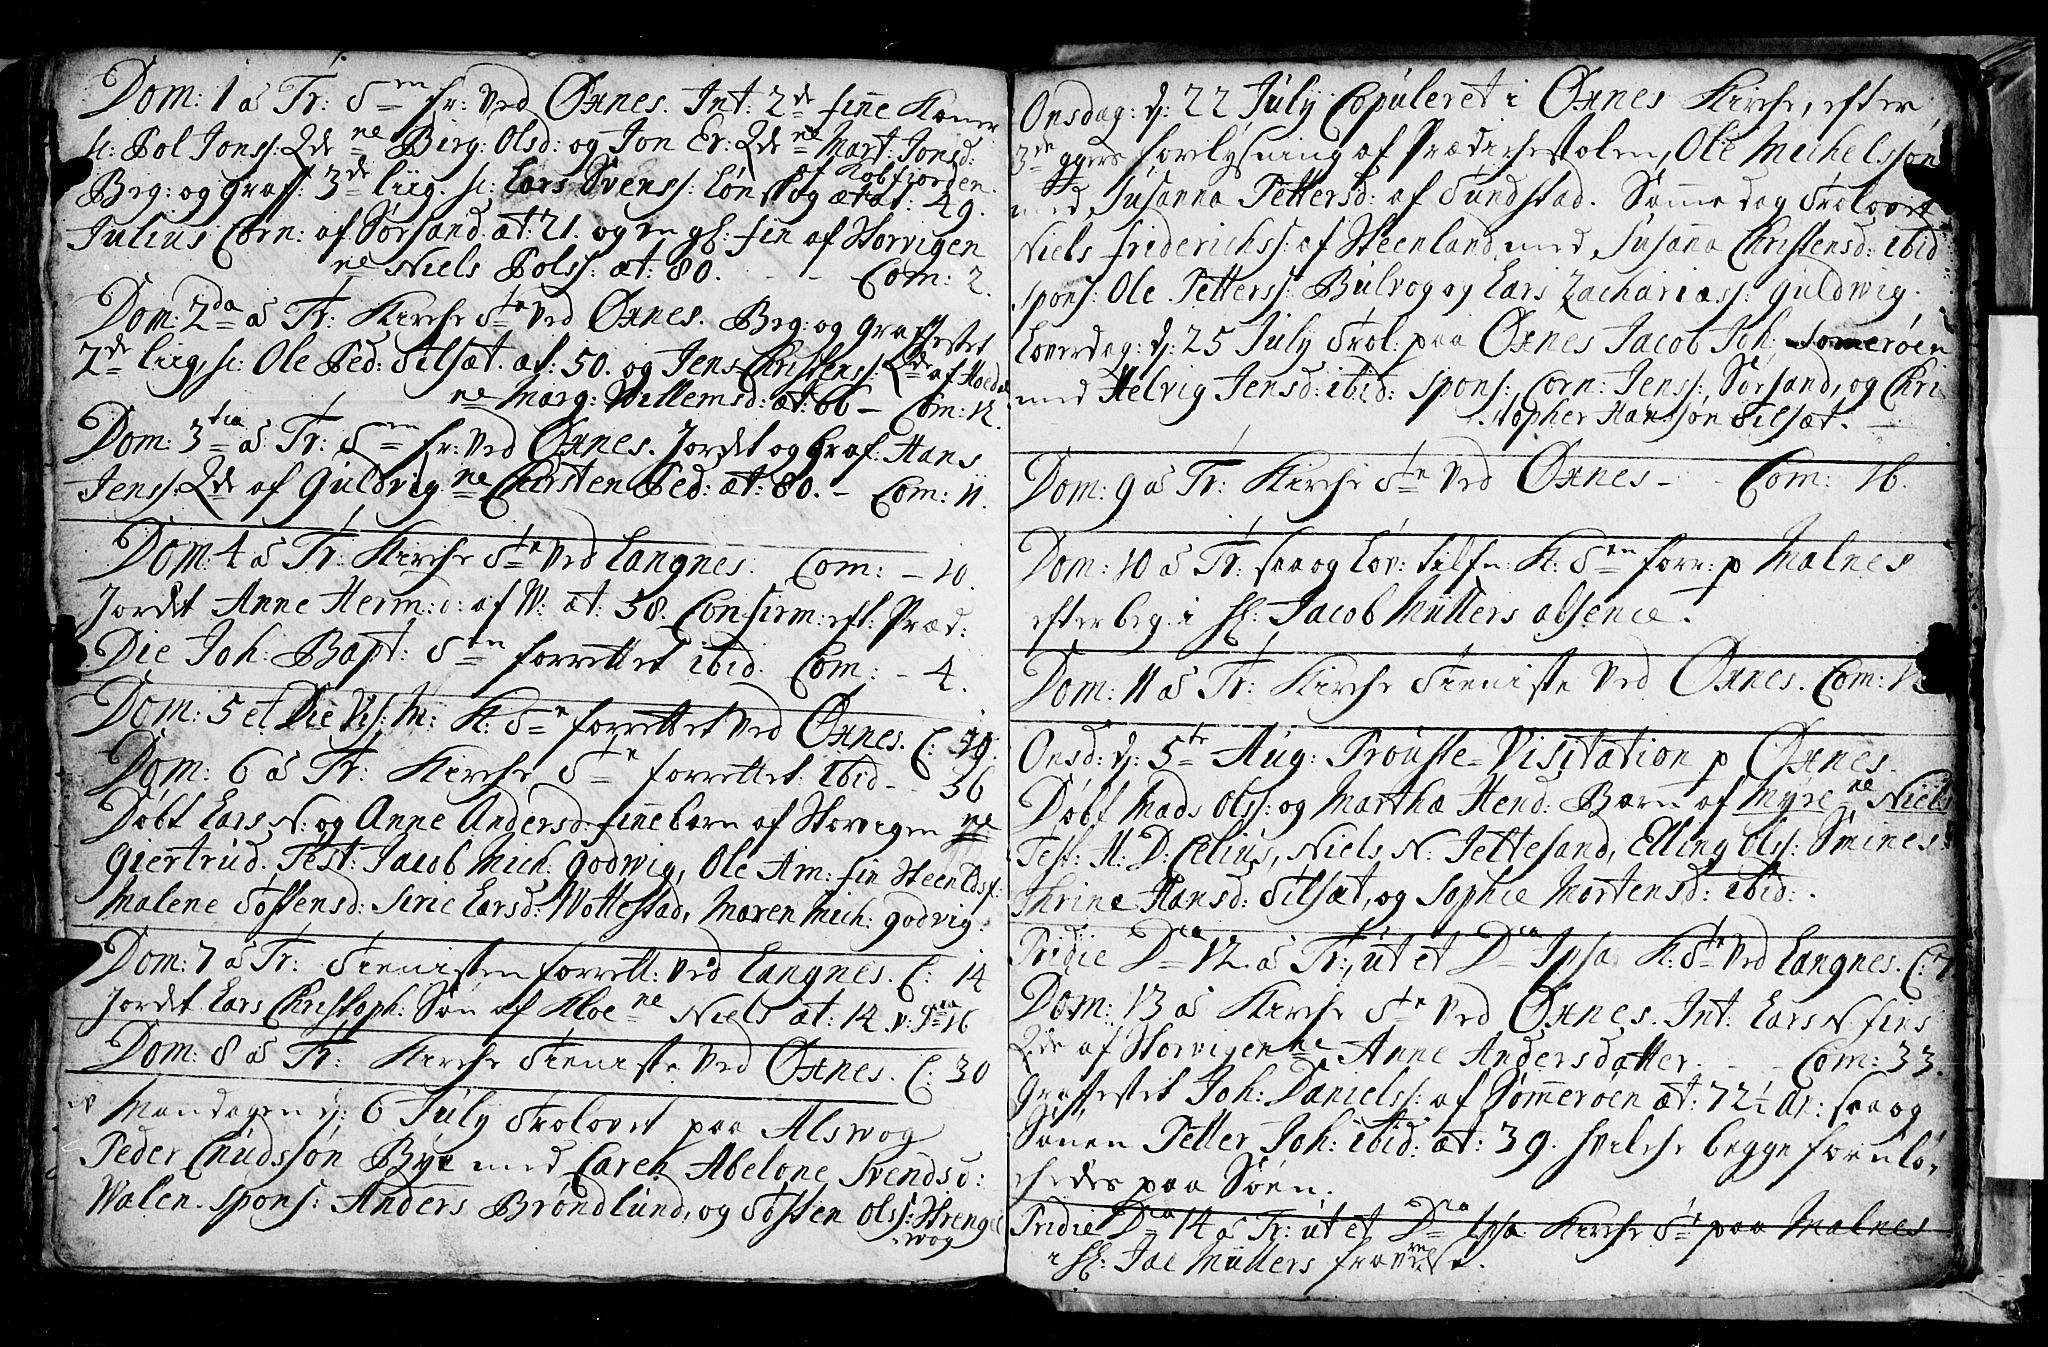 Dom: 1 a Tr: d en fr: ved Øxnes. Int: 2de finne Koner
sc: Pol Jonss: Qde ne Birg: Olsd: og Jon Er: Qde ne Mart: Jonsd:
af Kobfiorden.
Beg: og Graf: 3de liig. sc: Lars Svenss: Lønskog ætat: 49.
Julius Corn: af Sørsand æt: 21. og en gl: fin af Storvigen
ne Niels Polss: æt: 80. - - Com: 2.
Dom: 2da a Tr: Kirche dte ved Øxnes. Beg: og Graffestet
2de liig, sc: Ole Ped: Tilsæt. æt: 50. og Jens Christenss: Qde af
ne Marg: Willemsd: æt: 66 - Com: 12.
Dom: 3tia a Tr: d en fr: ved Øxnes. Jordet og Graf: Hans
Jenss: Qde af Guldvig ne Chirsten Ped: æt: 80. - Com: 11.
Dom: 4 a Tr: Kirche dte ved Langnes. Com: - 10
Jordet Anne Herm: d: af W: æt: 58. Confirm: eft: Præd:
Die Joh: Bapt: d en forrettet ibid. Com: - 4.
Dom: 5 et Die Vis: M: K: d e forrettet ved Øxnes. C: 30.
Dom: 6 a Tr: Kirche d e forrettet ibid - 36
Døbt Lars N: og Anne Andersd: finnebørn af Storvigen ne
Giertrud. Test: Jacob Mich: Godwig, Ole Am: fin Steenldsf:
Malene Tostensd: Siric Larsd: Wottestad, Maren Mich: Godvig.
Dom: 7 a Tr: Tienisten forrett: ved Langnes. C: 14
Jordet Lars Christoph: Søn af Kloe ne Niels æt: 14
Dom: 8 a Tr: Kirche Tieniste ved Øxnes. C: 30
Mandagen d: 6 July Trolovet paa Alswog
Peder Cnudssøn Bye med Caren Abelone Svendsd:
Walen. spons: Anders Brøndlund, og Tosten Olss: Strengel
wog
Onsdag: d: 22 July Copuleret i Øxnes Kirche, efter
3de ggers forlysning af Prædichestolen, Ole Michelssøn
med Susanna Pettersd: af Sundstad. Samme dag Trolovet
Niels Friderichss: af Steenland med Susanna Christensd: ibid:
spons: Ole Petterss: Bulvog og Lars Zachariass: Guldwig.
Løverdag: d: 25 July Trol: paa Øxnes Jacob Joh: Somerøen
med Helvig Jensd: ibid: spons: Corn: Jenss: Sørsand, og Chri
stopher Hanssøn Tilsæt.
Dom: 9 a Tr: Kirche dte ved Øxnes - Com: 16.
Dom: 10 a Tr: saa og Løv: tilfn: K: d en forr: p Malnes
efter beg: i Hr: Jacob Müllers absence.
Dom: 11 a Tr: Kirche Tieniste ved Øxnes. Com:
Onsd: d: 5te Aug: Prouste-Visitation p Øxnes.
Døbt Mads Olss: og Martha Hend: Børn af Myre ne Niels
Test: H: D: Celius, Niels N: Tettesand, Elling Olss: Smines
Thrine Hansd: Tilsæt, og Sophie Mortensd: ibid:.
Pridie Dca 12 a Tr:, ut et Dca Ipsa K: dte ved Langnes. C: 7
Dom: 13 a Kirche dte ved Øxnes. Int: Lars N fins
Qde af Storvigen ne Anne Andersdatter. - - Com: 33.
Graffestet Joh: Danielss: af Sømmerøen æt: 72½ Ar: saa og
Sønen Petter Joh: ibid: æt: 39. hvilche begge forulø-
chedes paa Søen.
Pridie Dca 14 a Tr: ut et Dca Ipsa Kirche dte paa Malnes
i Hr: Jac Müllers fraværelse.